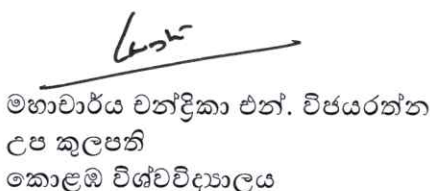 මහාචාර්ය චන්ද්‍රිකා එන්. විජයරත්න
උප කුලපති
කොළඹ විශ්වවිද්‍යාලය